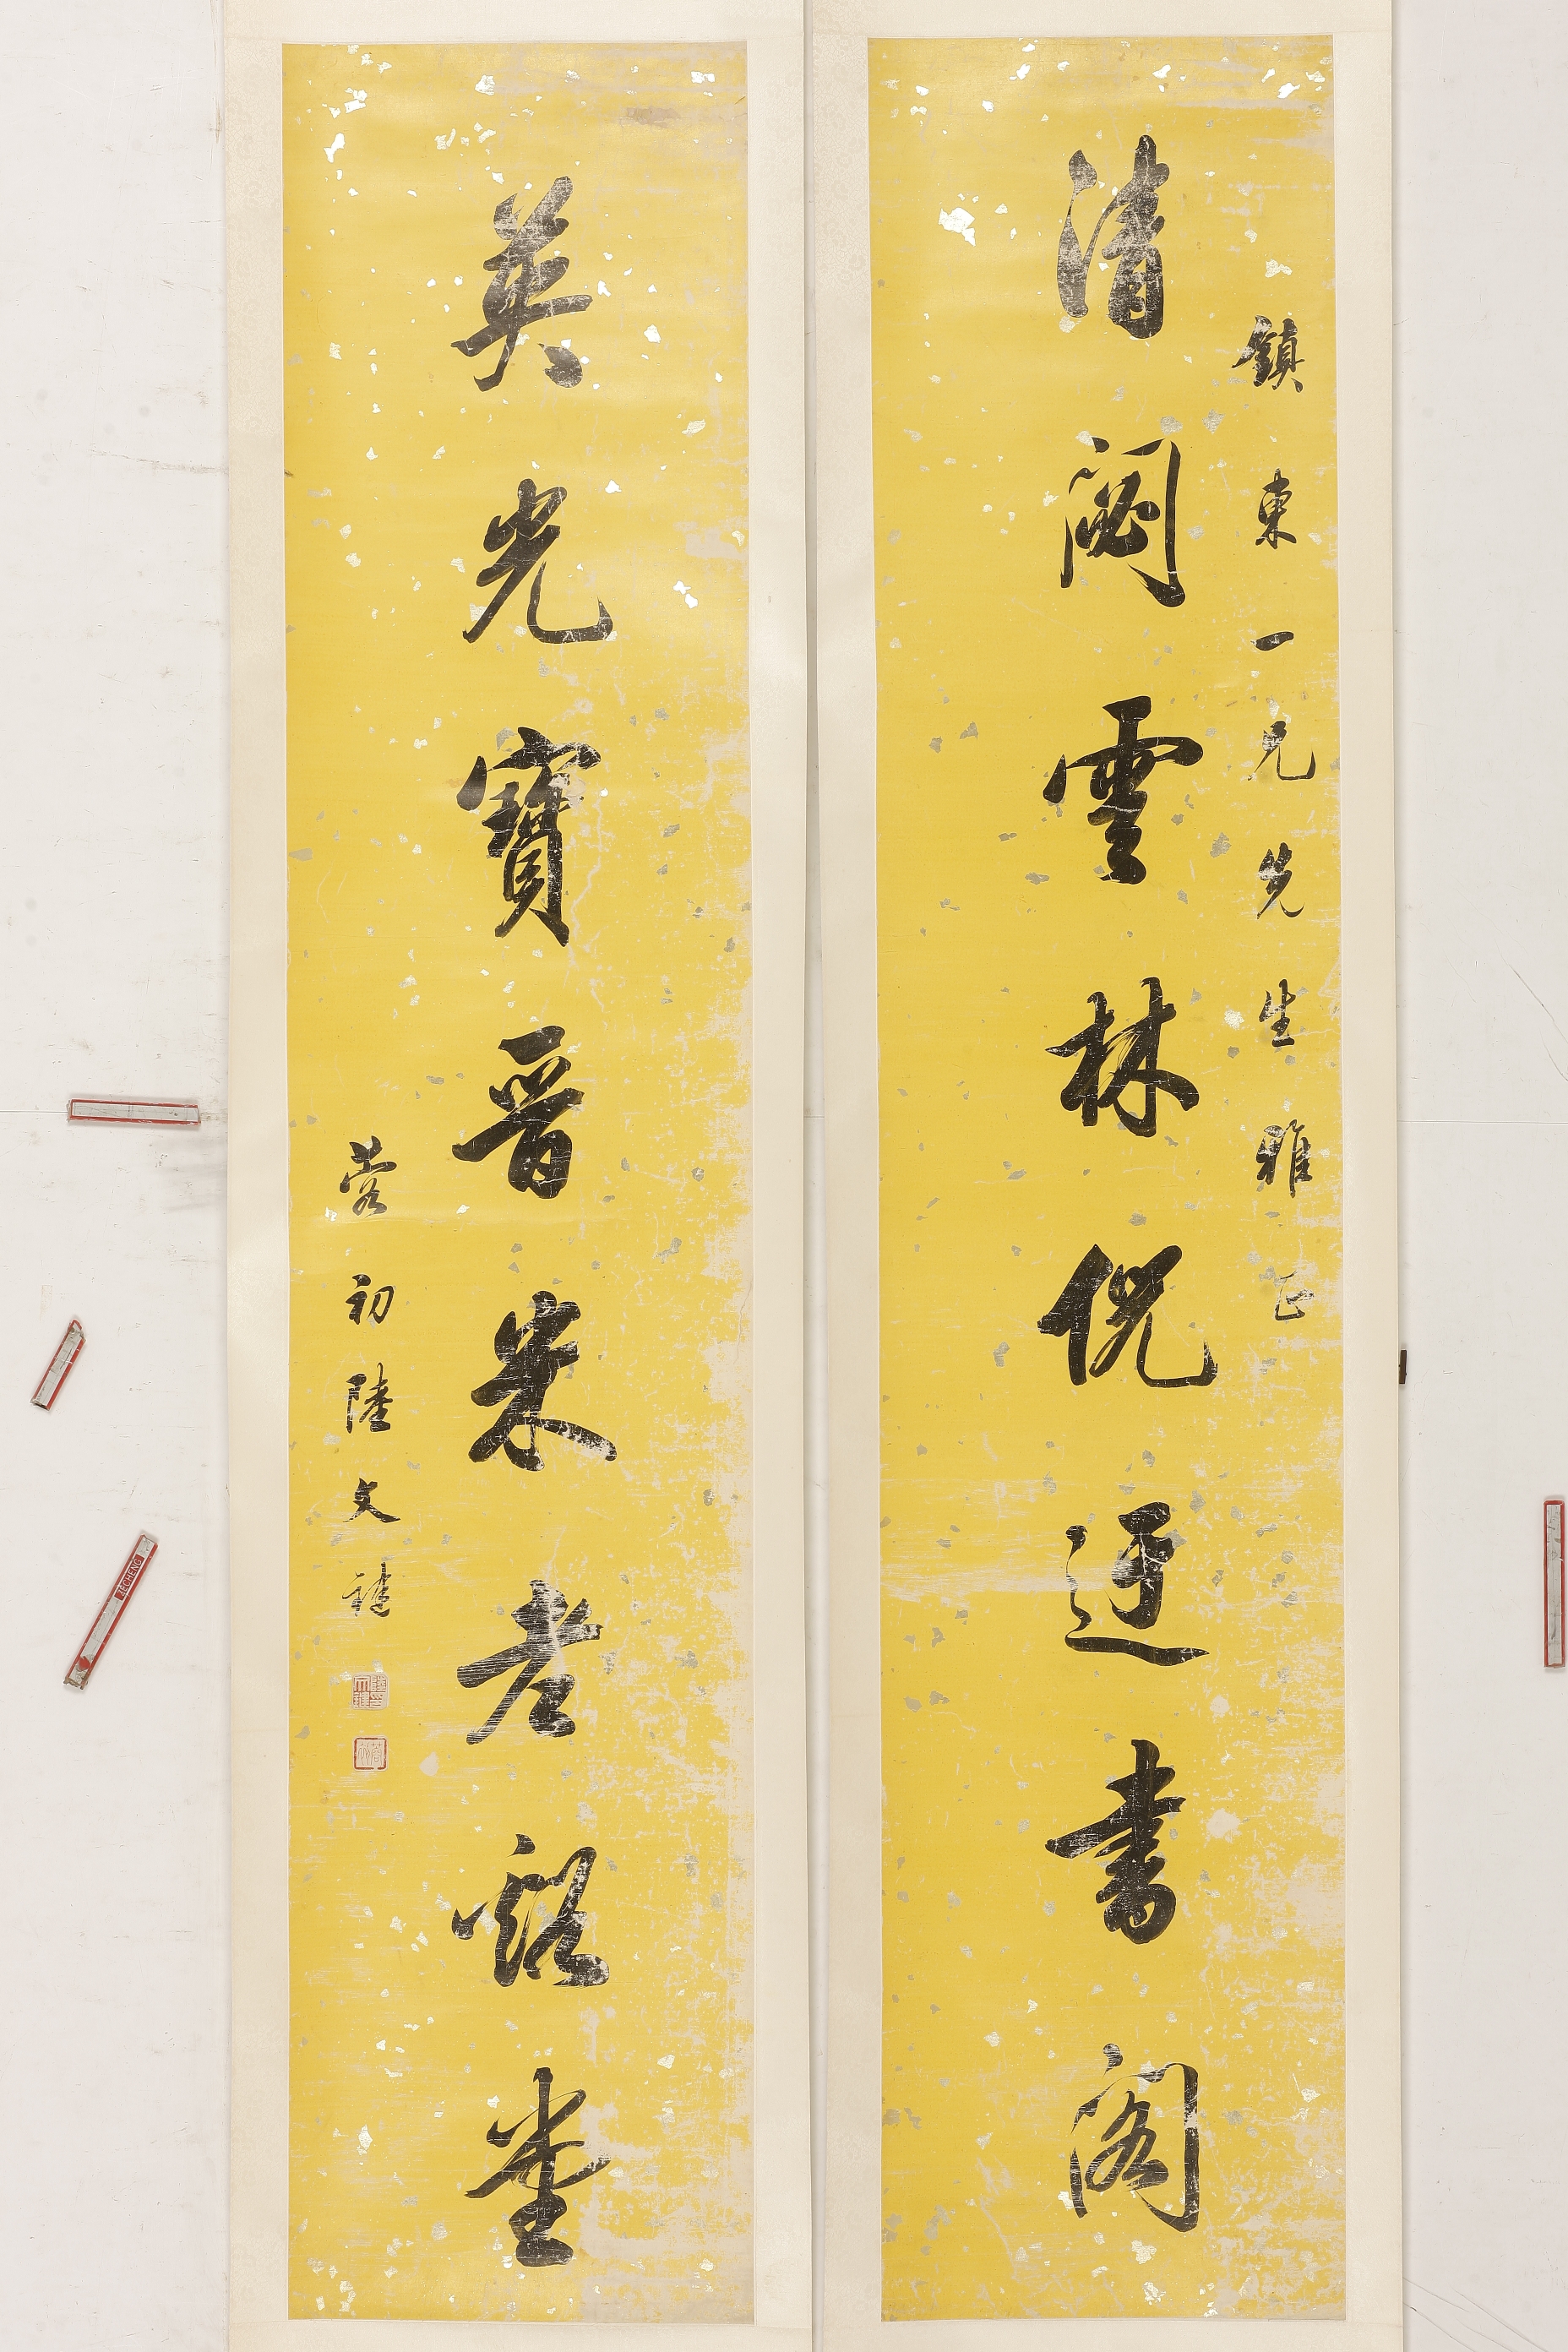 鎮東一兄先生雅正
清閟雲林倪迂書閣
英光寶晉米老谿堂
蓉初陸文